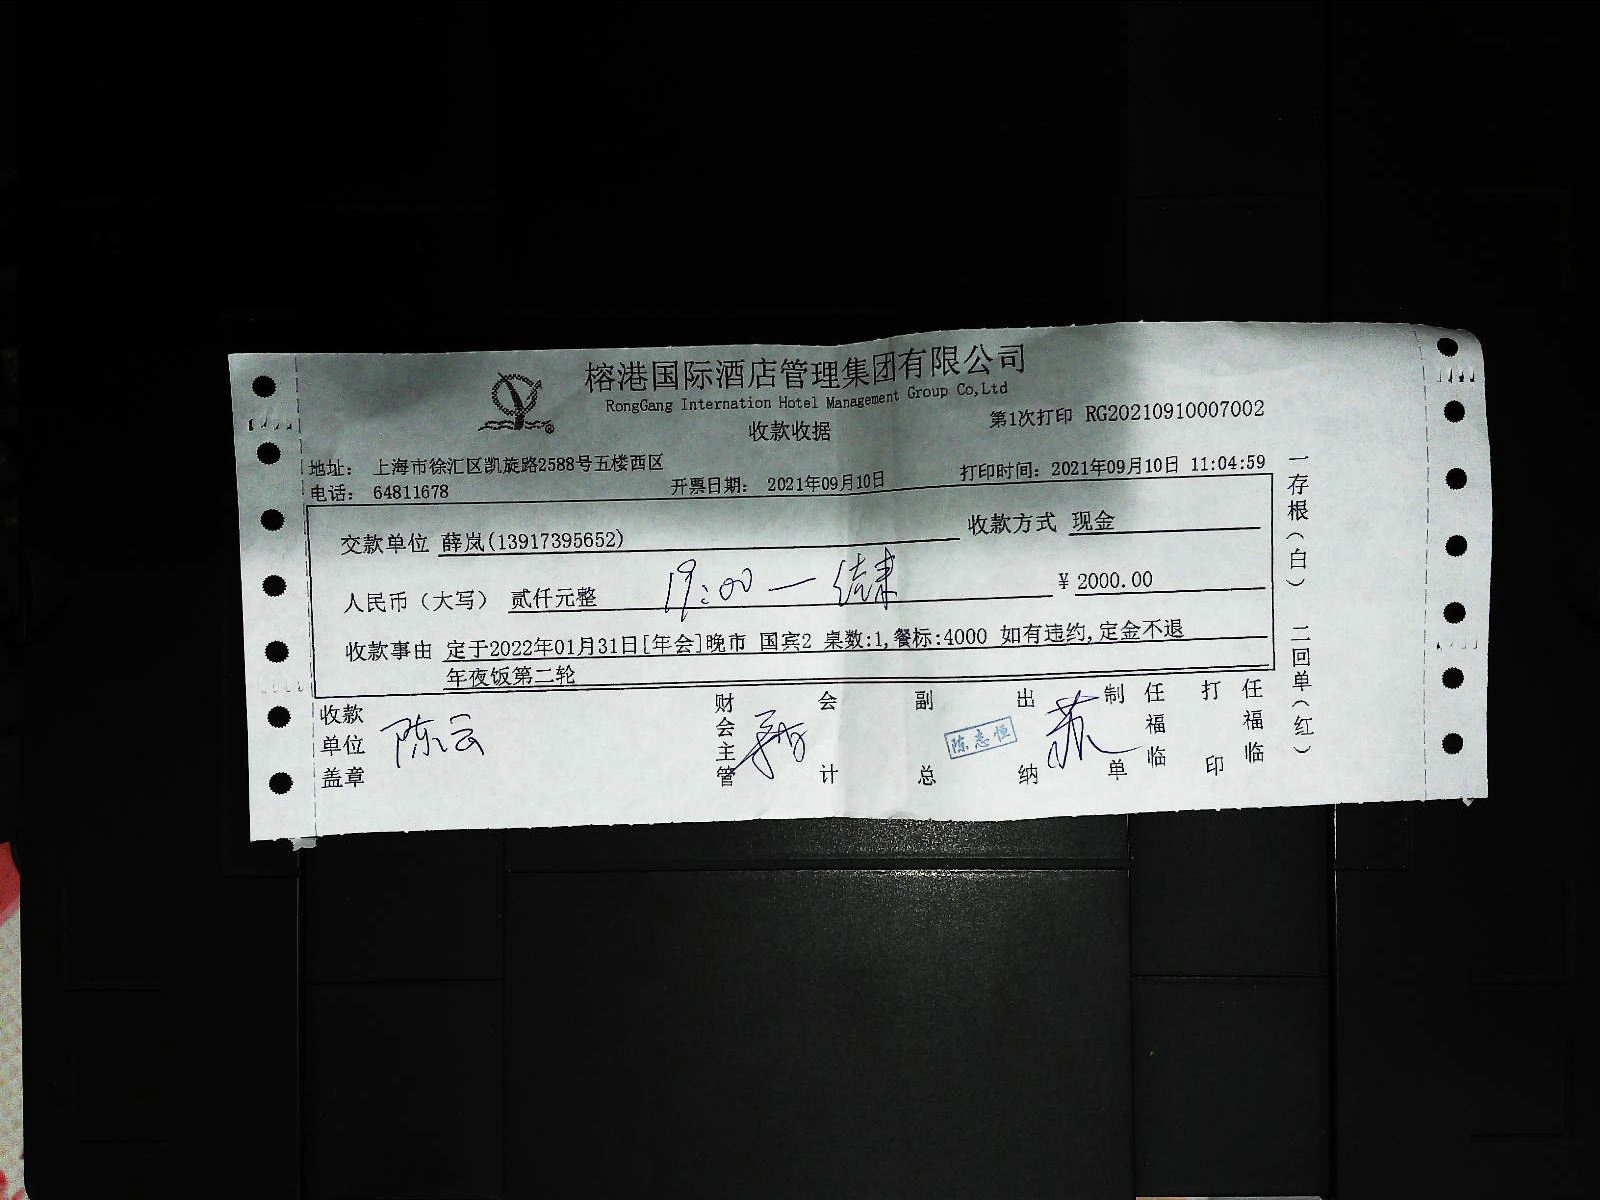 榕港国际酒店管理集团有限公司
RongGang Internation Hotel Management Group Co,Ltd
收款收据
第1次打印 RG20210910007002
地址： 上海市徐汇区凯旋路2588号五楼西区
电话： 64811678
开票日期： 2021年09月10日
打印时间： 2021年09月10日 11:04:59
交款单位 薛岚(13917395652)
收款方式 现金
人民币（大写） 贰仟元整
19:00一结束
¥ 2000.00
收款事由 定于2022年01月31日[年会]晚市 国宾2 桌数:1,餐标:4000 如有违约,定金不退
年夜饭第二轮
收款单位盖章 陈云
财会主管
会计
副总
陈志恒
出纳
苏
制单 任福临
打印 任福临
一存根（白） 二回单（红）